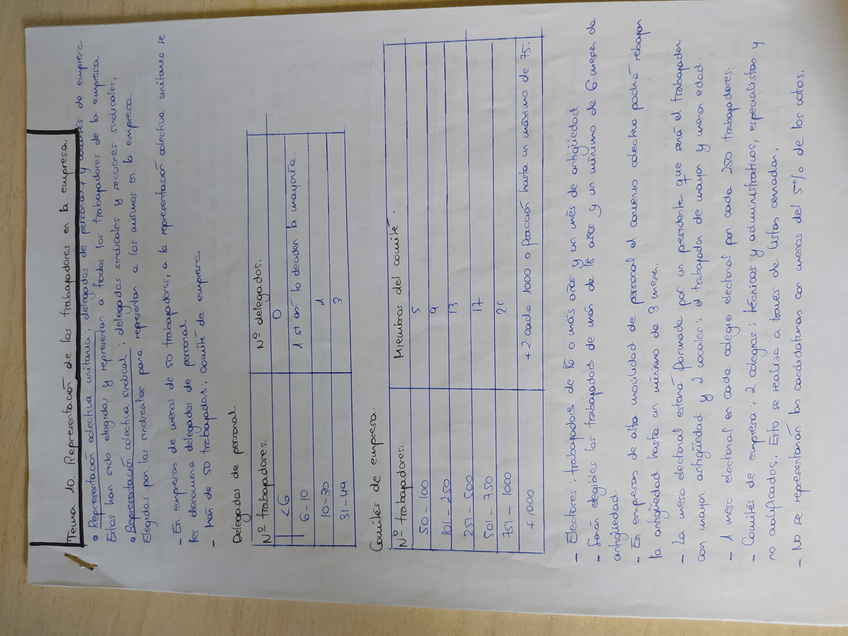 Tema 10. Representación de los trabajadores en la empresa.
• Representación colectiva unitaria: delegados de personal y comités de empresa
Estos han sido elegidos y representan a todos los trabajadores de la empresa.
• Representación colectiva sindical: delegados sindicales y secciones sindicales,
elegidas por los sindicatos para representar a los mismos en la empresa.
- En empresas de menos de 50 trabajadores, a la representación colectiva unitaria se
les denomina delegados de personal.
- más de 50 trabajadores; comité de empresa.
Delegados de personal.
Nº trabajadores. Nº delegados.
<6 0
6-10 1 si así lo deciden la mayoría.
10-30 1
31-49 3
Comités de empresa.
Nº trabajadores. Miembros del comité.
50-100 5
101-250 9
251-500 13
501-750 17
751-1000 21
+1000 +2 cada 1000 o fracción hasta un máximo de 75.
- Electores: trabajadores de 16 o más años y un mes de antigüedad
- Serán elegibles los trabajadores de más de 18 años y un mínimo de 6 meses de
antigüedad.
- En empresas de alta movilidad de personal el convenio colectivo podrá rebajar
la antigüedad hasta un mínimo de 3 meses.
- La mesa electoral estará formada por un presidente que será el trabajador
con mayor antigüedad y 2 vocales; el trabajador de mayor y menor edad.
- 1 mesa electoral en cada colegio electoral por cada 250 trabajadores.
- Comités de empresa: 2 colegios: técnicos y administrativos, especialistas y
no cualificados. Esto se realiza a través de listas cerradas.
- No se representarán las candidaturas con menos del 5% de los votos.